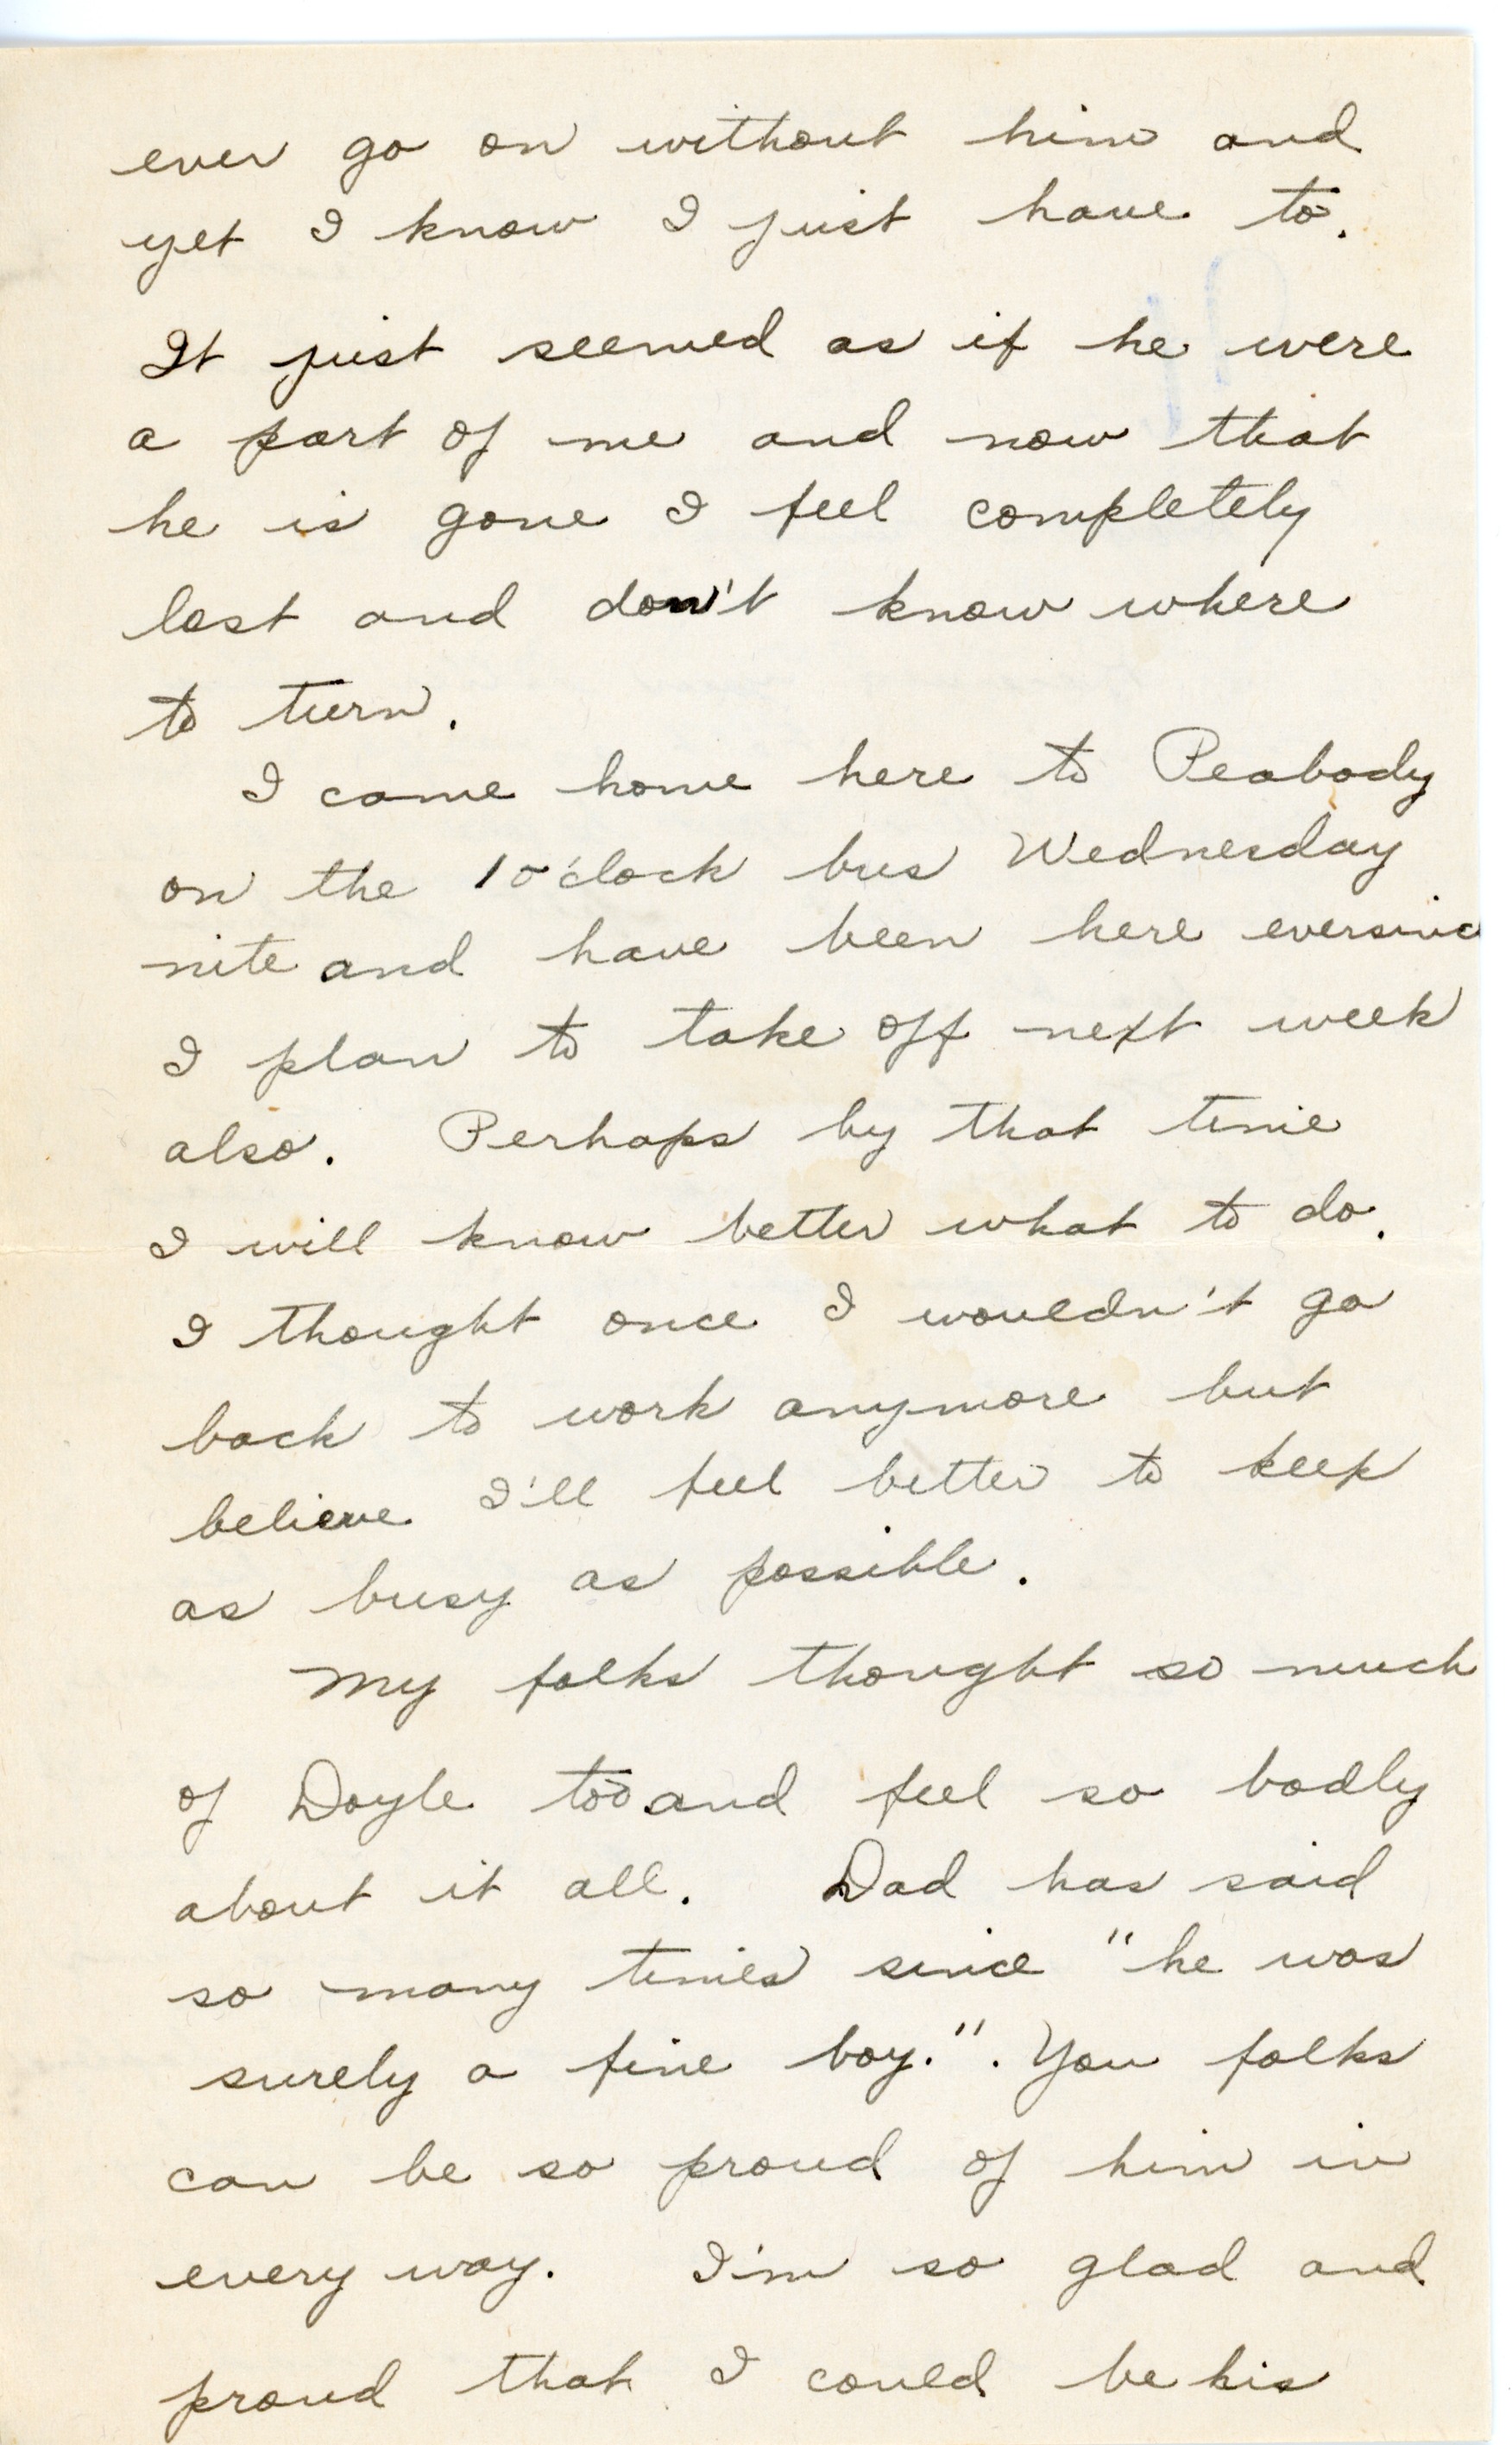 ever go on without him and
yet I know I just have to.
It just seemed as if he were
a part of me and now that
he is gone I feel completely
lost and don't know where
to turn.
I came home here to Peabody
on the 1 o'clock bus Wednesday
nite and have been here eversinc
I plan to take off next week
also. Perhaps by that time
I will know better what to do.
I thought once I wouldn't go
back to work anymore but
believe I'll feel better to keep
as busy as possible.
My folks thought so much
of Doyle too and feel so badly
about it all. Dad has said
so many times since "he was
surely a fine boy.". You folks
can be so proud of him in
every way. I'm so glad and
proud that I could be his